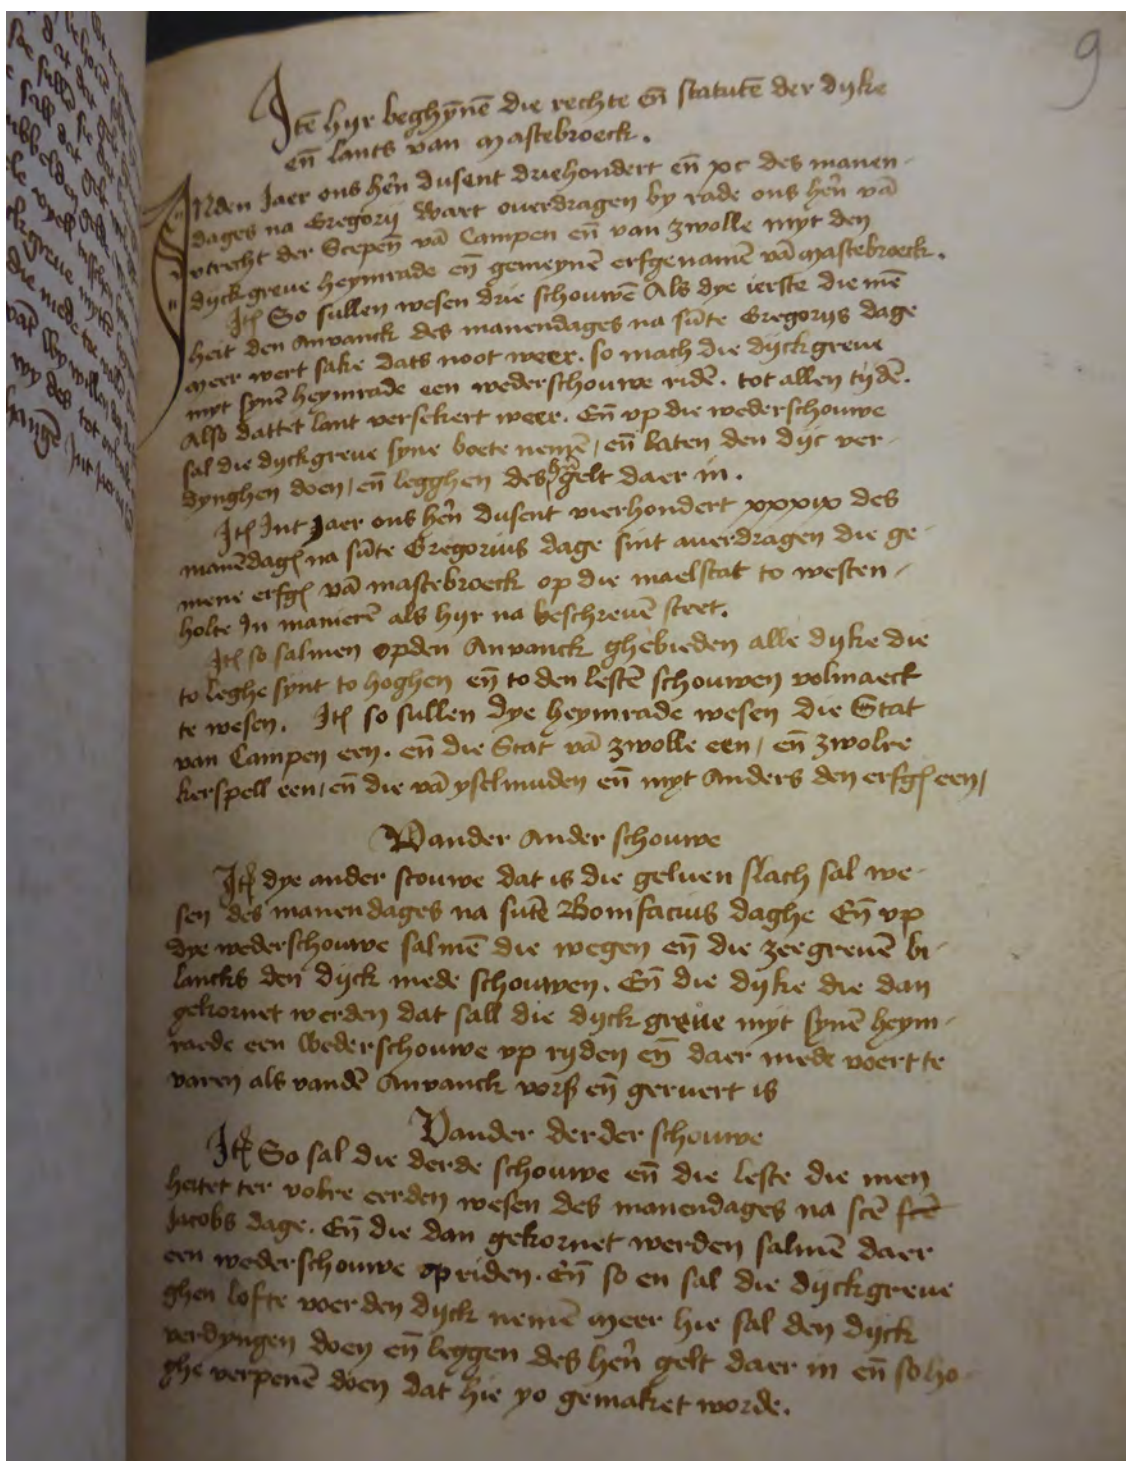 9
Itē hyr beghȳnē die rechte eñ statutē der dijke
eñ lants van Mastebroeck.
INden Jaer ons hẽn dusent driehondert eñ xc des manen-
dages na Gregorij wart ouerdragen by rade ons hẽn vā
vtrecht der Scepeñ vā Campen eñ van zwolle myt den
dijckgreue heymrade eñ gemeynē erfgenamē vā Mastebroeck.
Itꝭ So sullen wesen drie schouwē Als dye ierste die mē
heit den Anvanck des manendages na sūte Gregorijs dage
Meer wert sake dats noot weer. so mach die dijckgreue
myt synē heymrade een wederschouwe ridē. tot allen tijdē.
Also dattet lant versekert weer. Eñ vp die wederschouwe
sal die dijckgreue syne boete nemē / eñ laten den dijc ver-
dynghen doen / eñ legghen des hẽn gelt daer in.
Itꝭ Int Jaer ons hẽn dusent vierhondert xxxix des
manēdagꝭ na sūte Gregorius dage sint auerdragen die ge-
mene erfgꝭ vā mastebroeck op die maelstat to westen-
holte In manierē als hyr na beschreuē steet.
Itꝭ so salmen opden Anvanck ghebieden alle dijke die
to leghe synt to hoghen eñ to den lestē schouwen volmaeck
te wesen. Itꝭ so sullen dye heymrade wesen die Stat
van Campen een. eñ die Stat vā zwolle een / eñ zwolre
kerspell een / eñ die vā yselmuden eñ myt Anders den erfgꝭ een /
Vander Ander schouwe
Itꝭ dye ander scouwe dat is die geluen slach sal we-
sen des manendages na sutē Bonifacius daghe Eñ vp
dye wederschouwe salmē die wegen eñ die zeegreuē bi-
lancks den dijck mede schouwen. Eñ die dijke die dan
gekornet werden dat sall die dijckgreue myt synē heym-
raede een wederschouwe vp rijden eñ daer mede voert te
varen als vandē Anvanck vorß eñ geruert is
Vander derder schouwe
Itꝭ So sal die derde schouwe eñ die leste die men
heitet ter volre eerden wesen des manendages na scē scē
Jacobs dage. Eñ die dan gekornet werden salmē daer
een wederschouwe op riden. Eñ so en sal die dijckgreue
ghen lofte voer den dijck nemē Meer hie sal den dijck
verdyngen doen eñ leggen des hẽn gelt daer in eñ so ho-
ghe verpenē doen dat hie yo gemaket worde.